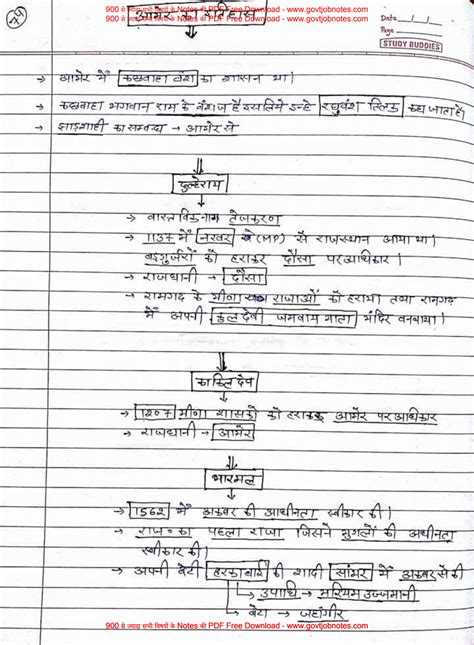 900 से ज्यादा सभी विषयों के Notes की PDF Free Download - www.govtjobnotes.com
आमेर का इतिहास
Data
Page
STUDY BUDDIES
→ आमेर में कछवाहा वंश का शासन था।
→ कछवाहा भगवान राम के वंशज हैं इसलिये इन्हे रघुवंश तिलक कहा जाता है।
→ झाड़शाही का सम्बन्ध → आमेर से
दुल्हेराय
→ वास्तविक नाम तेजकरण
→ 1137 में नरवर (MP) से राजस्थान आया था।
बड़गुर्जरों को हराकर दौसा पर अधिकार।
→ राजधानी → दौसा
→ रामगढ़ के मीणा राजाओं को हराया तथा रामगढ़
में अपनी कुल देवी जमवाय माता मंदिर बनवाया।
काकिल देव
→ 1207 मीणा शासकों को हराकर आमेर पर अधिकार
→ राजधानी → आमेर
भारमल
→ 1562 में अकबर की आधीनता स्वीकार की।
→ राज० का पहला राजा जिसने मुगलों की अधीनता
स्वीकार की।
→ अपनी बेटी हरकाबाई की शादी सांभर में अकबर से की
→ उपाधि → मरियम उज्जमानी
→ बेटा → जहांगीर
900 से ज्यादा सभी विषयों के Notes की PDF Free Download - www.govtjobnotes.com